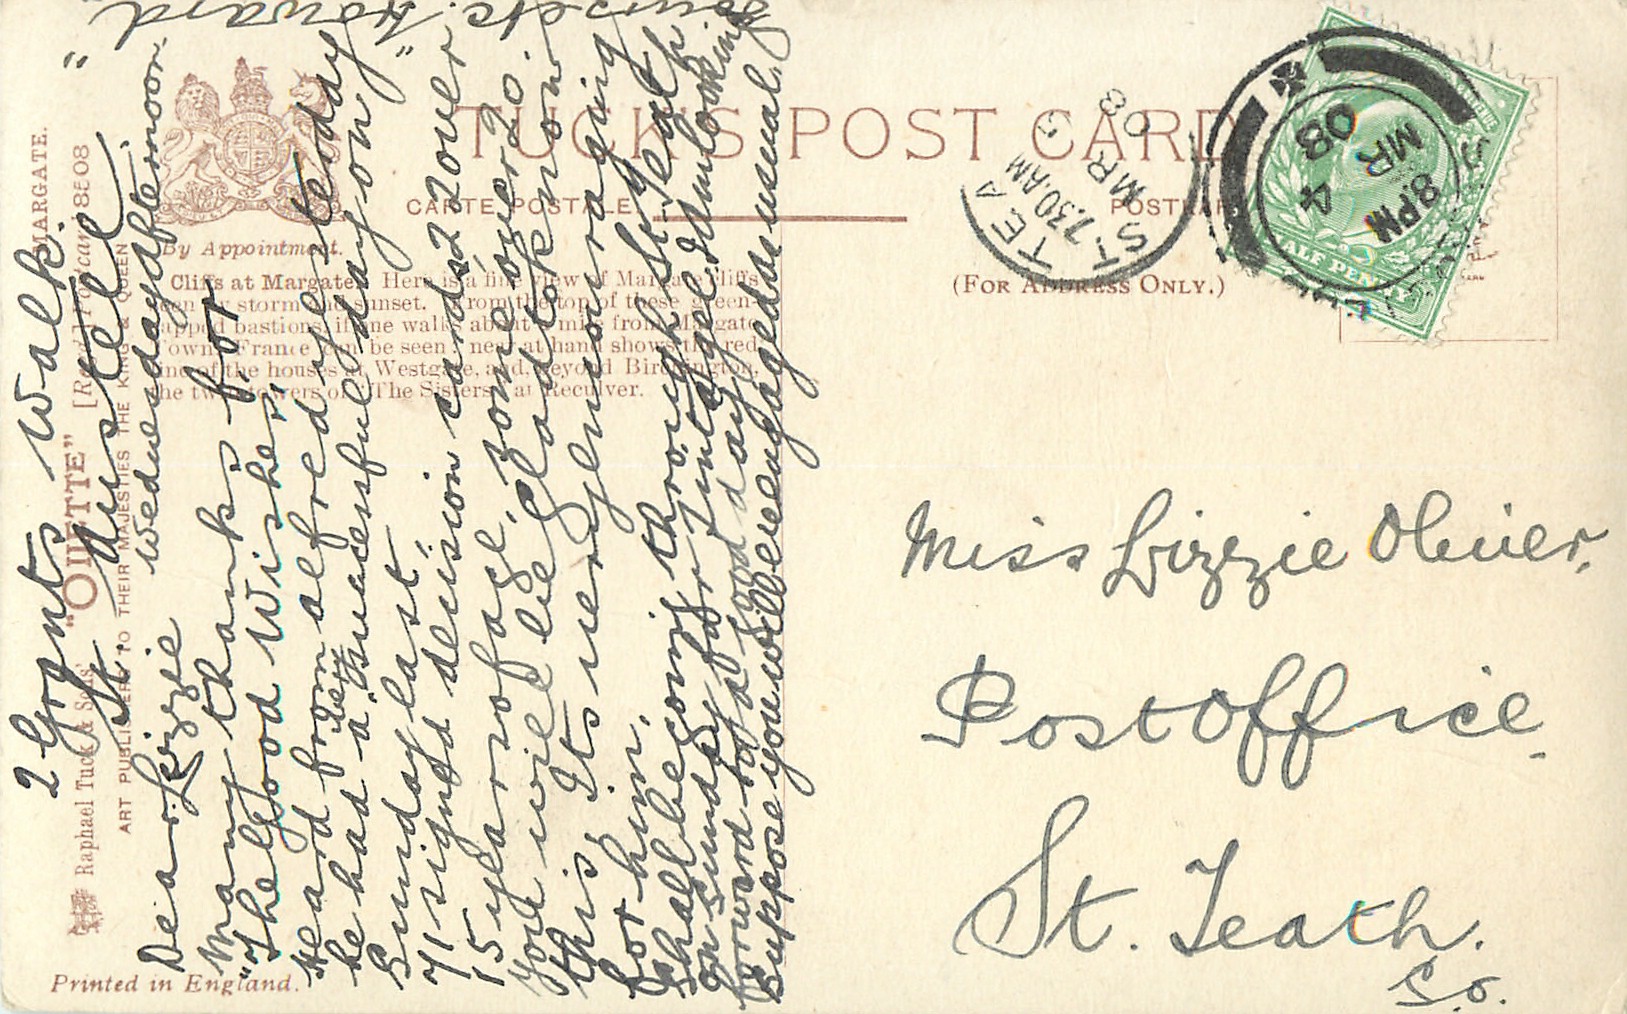 TUCK'S POST CARD
CARTE POSTALE
POSTKARTE
(FOR ADDRESS ONLY.)
By Appointment.
Cliffs at Margate. Here is a fine view of Margate cliffs
seen by storm and sunset. From the top of these green-
capped bastions, if one walks about a mile from Margate
Town, France can be seen; near at hand shows the red
line of the houses at Westgate, and, beyond Birchington,
the twin towers of "The Sisters" at Reculver.
MARGATE.
"OILETTE" [Regd.] Postcard 8508
Raphael Tuck & Sons'
ART PUBLISHERS TO THEIR MAJESTIES THE KING & QUEEN
Printed in England.
2 Grants Walk.
St. Austell
Wednesday afternoon.
Dear Lizzie
Many thanks for
"The" good wishes,
Heard from alfred yesterday
he had a "very" successful day on
Sunday last.
71 signed decision cards, 22 over
15 years of age, some over 20.
You will be glad to know
this, Its very encouraging
for him.
Shall be coming through St. Teath
on Sunday for Tintagel I am looking
forward to a good day
suppose you will be engaged as usual,
Yours etc. "Howard"
TEA
ST.
7.30.AM
MR 5
08
8.PM
MR 4
08
HALF PENNY
Miss Lizzie Oliver,
Post Office.
St. Teath.
S.O.